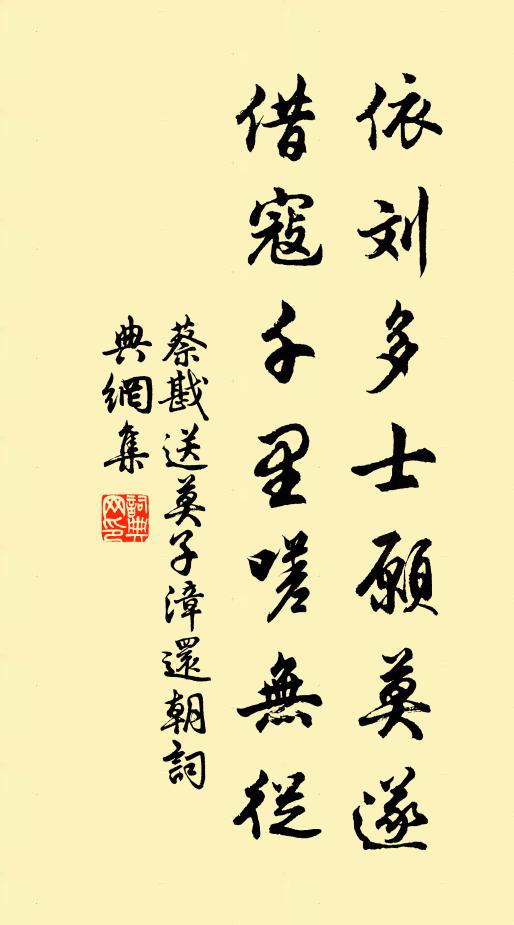 依刘多士愿莫遂
借寇千里嗟無從
蔡戡送莫子漳還朝詞
典網集
詞典網印